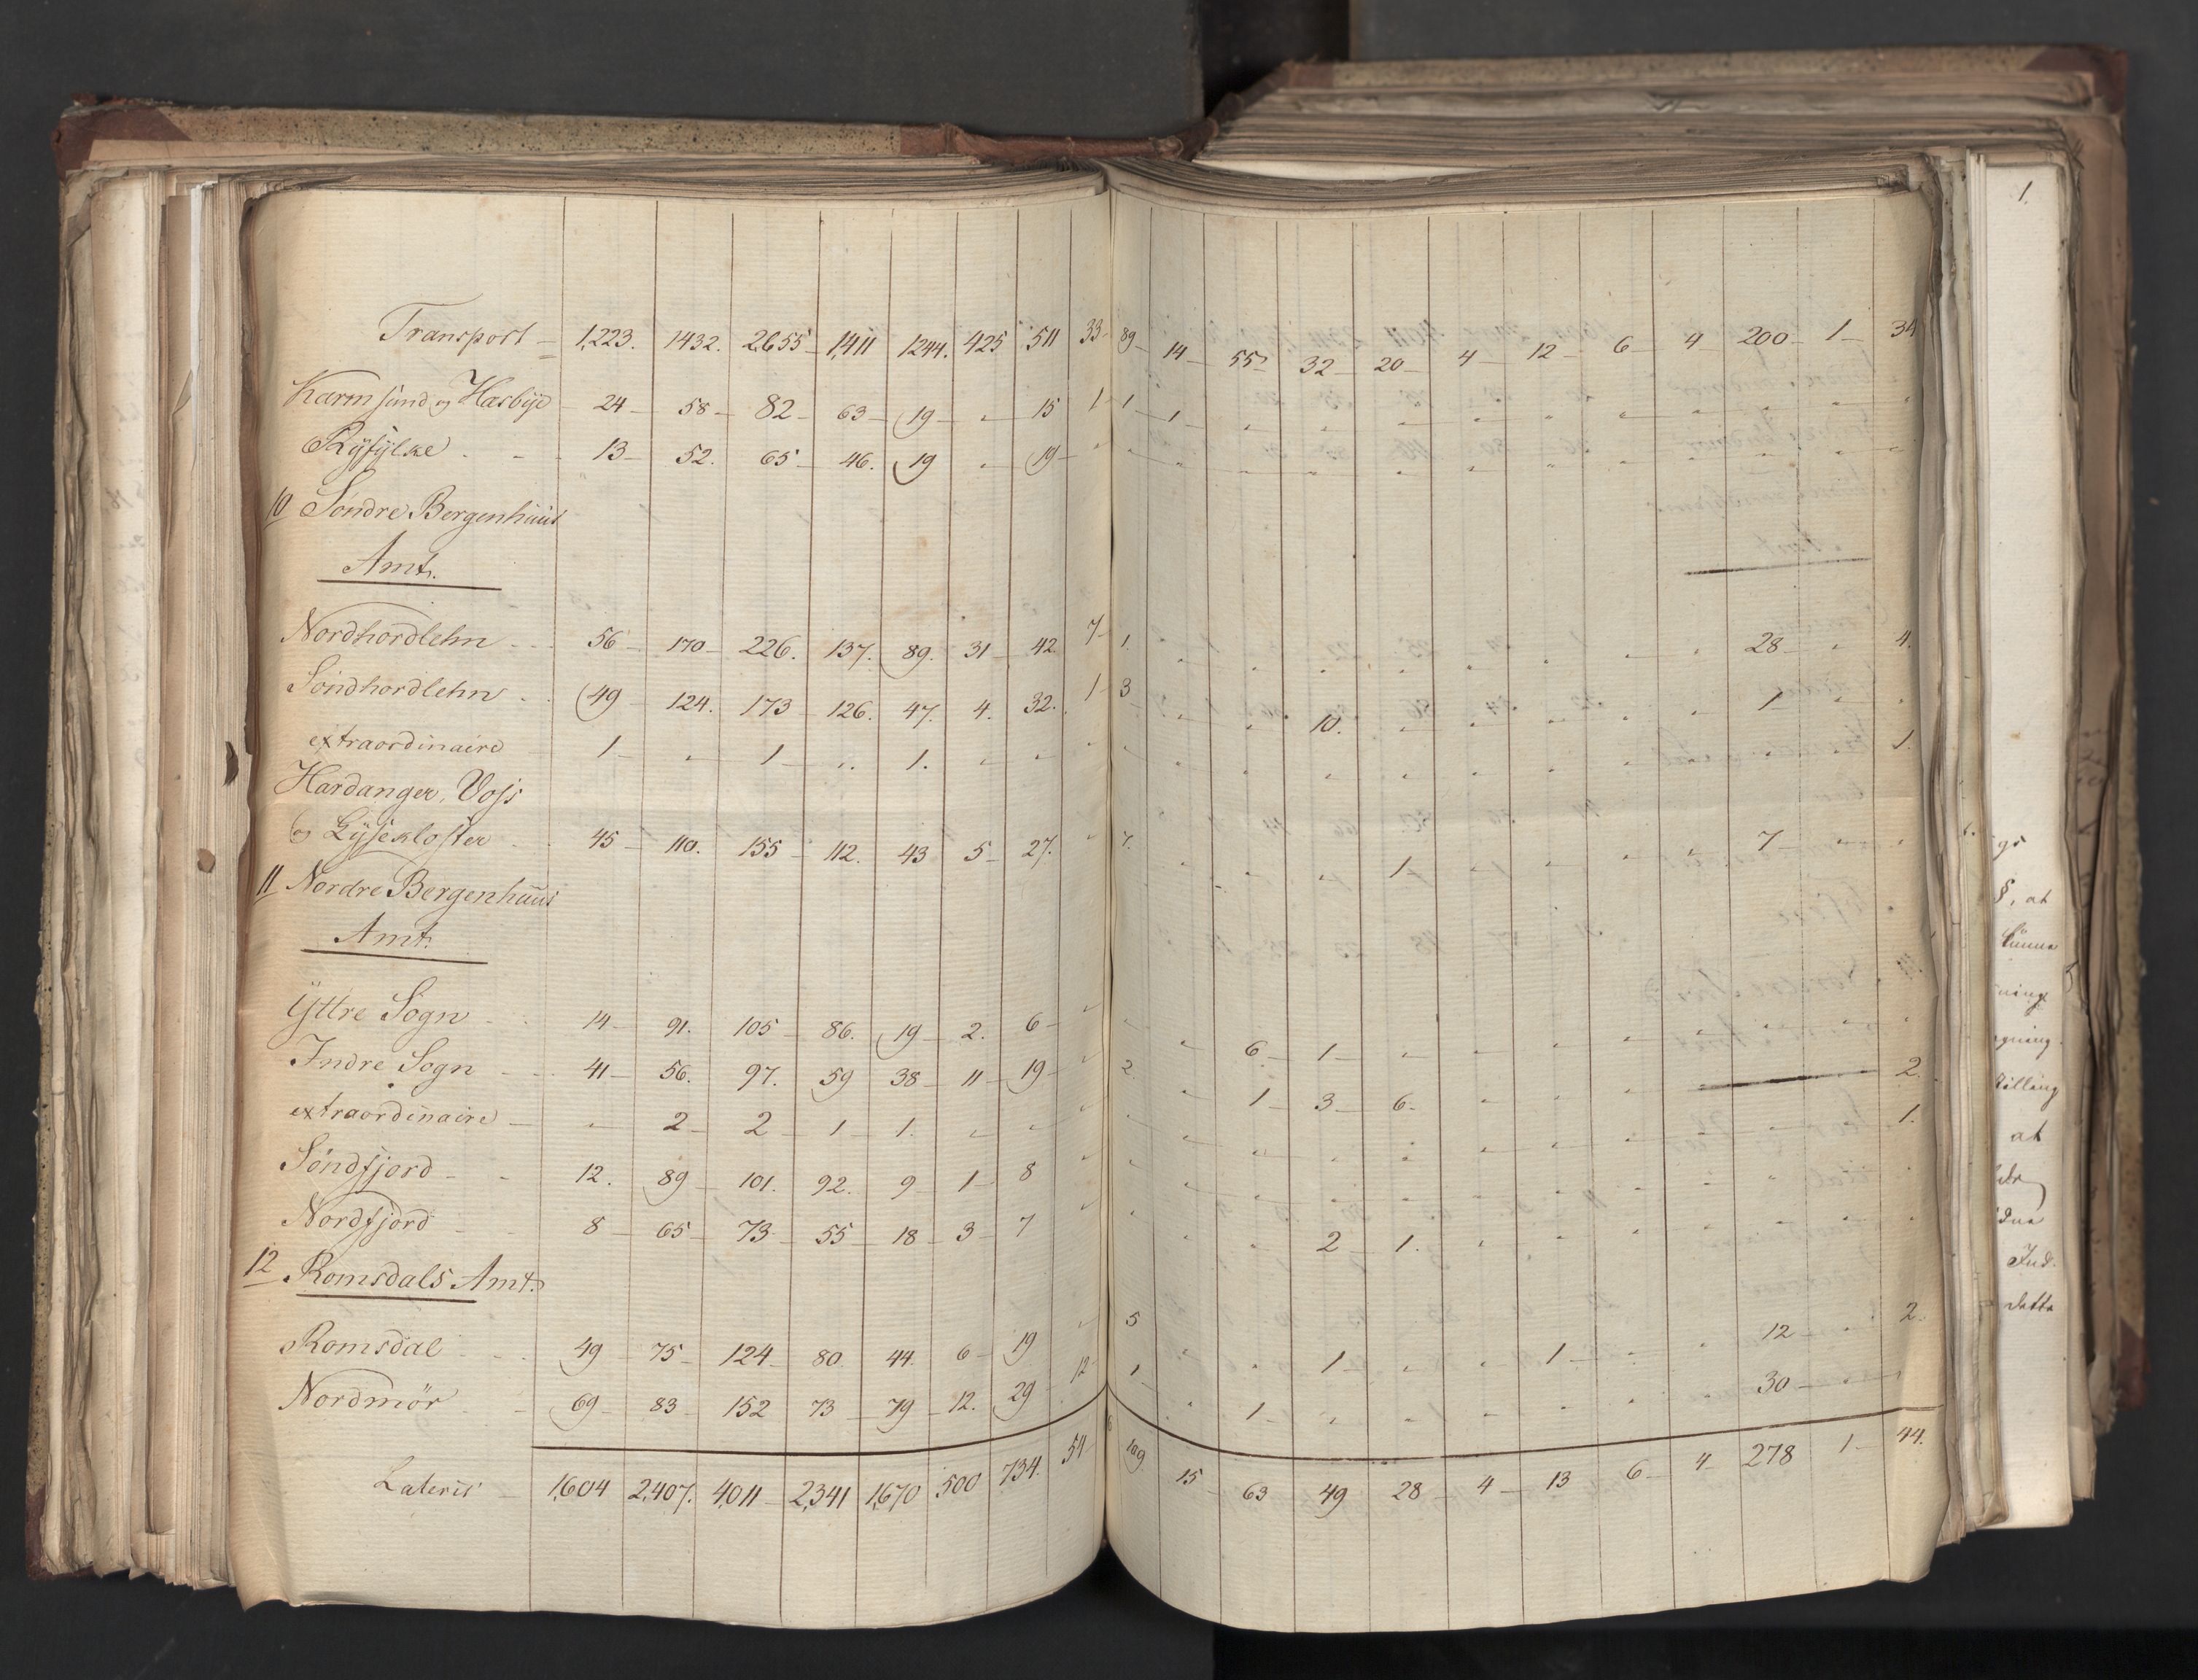 1.
Transport — 1,223. 1432. 2,655 1,411 1244. 425 511 33 89 14 55 32 20 4 12 6 4 200 1 34
Karmsund og Hasbye 24 58 82 63 19 " 15 1 1 1 " " " " " " " " " "
Ryfylke 13 52. 65 46. 19 " 19 " " " " " " " " " " " " "
10 Søndre Bergenhuus
Amt.
Nordhordlehn 56 170 226. 137. 89. 31 42 7 1. " " " " " " " " 28 " 4.
Søndhordlehn 49 124. 173 126. 47. 4. 32. 1 3 " " 10. " " " " " 1 " "
extraordinaire 1 " 1 " 1. " " " " " " " " " " " " " " 1.
Hardanger, Voss
og Lysekloster 45 110. 155 112. 43 5 27. " 7. " " " 1 " " " " 7 " "
11 Nordre Bergenhuus
Amt.
Yttre Sogn 14 91. 105 86. 19 2. 6 " " " 6 1 " " " " " " " "
Indre Sogn 41 56. 97. 59 38 11 19 " 2. " 1 3 6 " " " " 2.
extraordinaire " 2 2 1 1. " " " " " " " " " " " " " " 1.
Søndfjord 12. 89 101. 92. 9 1 8 " " " " " " " " " " " " "
Nordfjord 8 65 73 55 18 3 7 " " " " 2 1. " " " " " " "
12 Romsdals Amt.
Romsdal 49 75 124 80. 44. 6 19 " 5 " " 1 " " 1 " " 12 " 2.
Nordmör 69 83 152 73 79 12. 29 12 1 " 1 " " " " " " 30
Lateris 1,604 2,407. 4,011 2,341 1,670 500 734. 54 109 15 63 49 28 4 13 6 4 278 1 44.
§, at
at
Ind.
dette